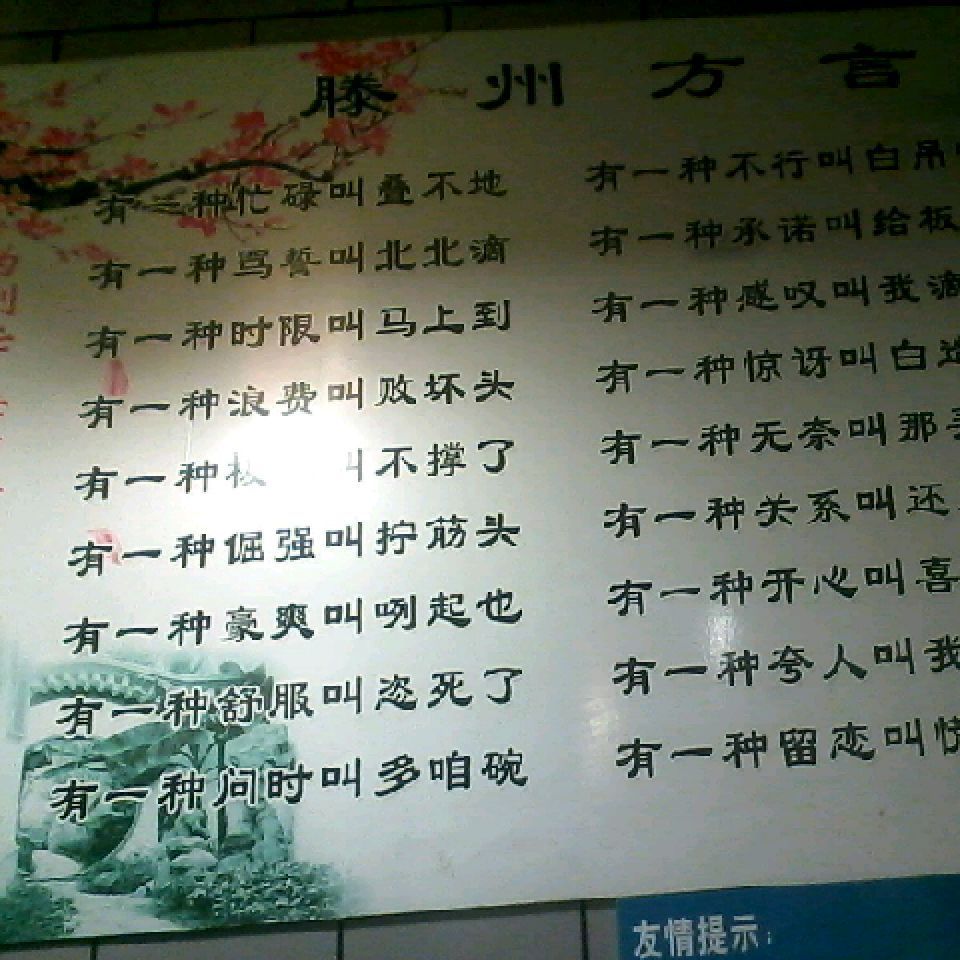 滕州方言
有一种忙碌叫叠不地
有一种骂誓叫北北滴
有一种时限叫马上到
有一种浪费叫败坏头
有一种 叫不撑了
有一种倔强叫拧筋头
有一种豪爽叫咧起也
有一种舒服叫恣死了
有一种问时叫多咱碗
有一种不行叫白吊
有一种承诺叫给板
有一种感叹叫我滴
有一种惊讶叫白
有一种无奈叫那
有一种关系叫还
有一种开心叫喜
有一种夸人叫我
有一种留恋叫
友情提示: